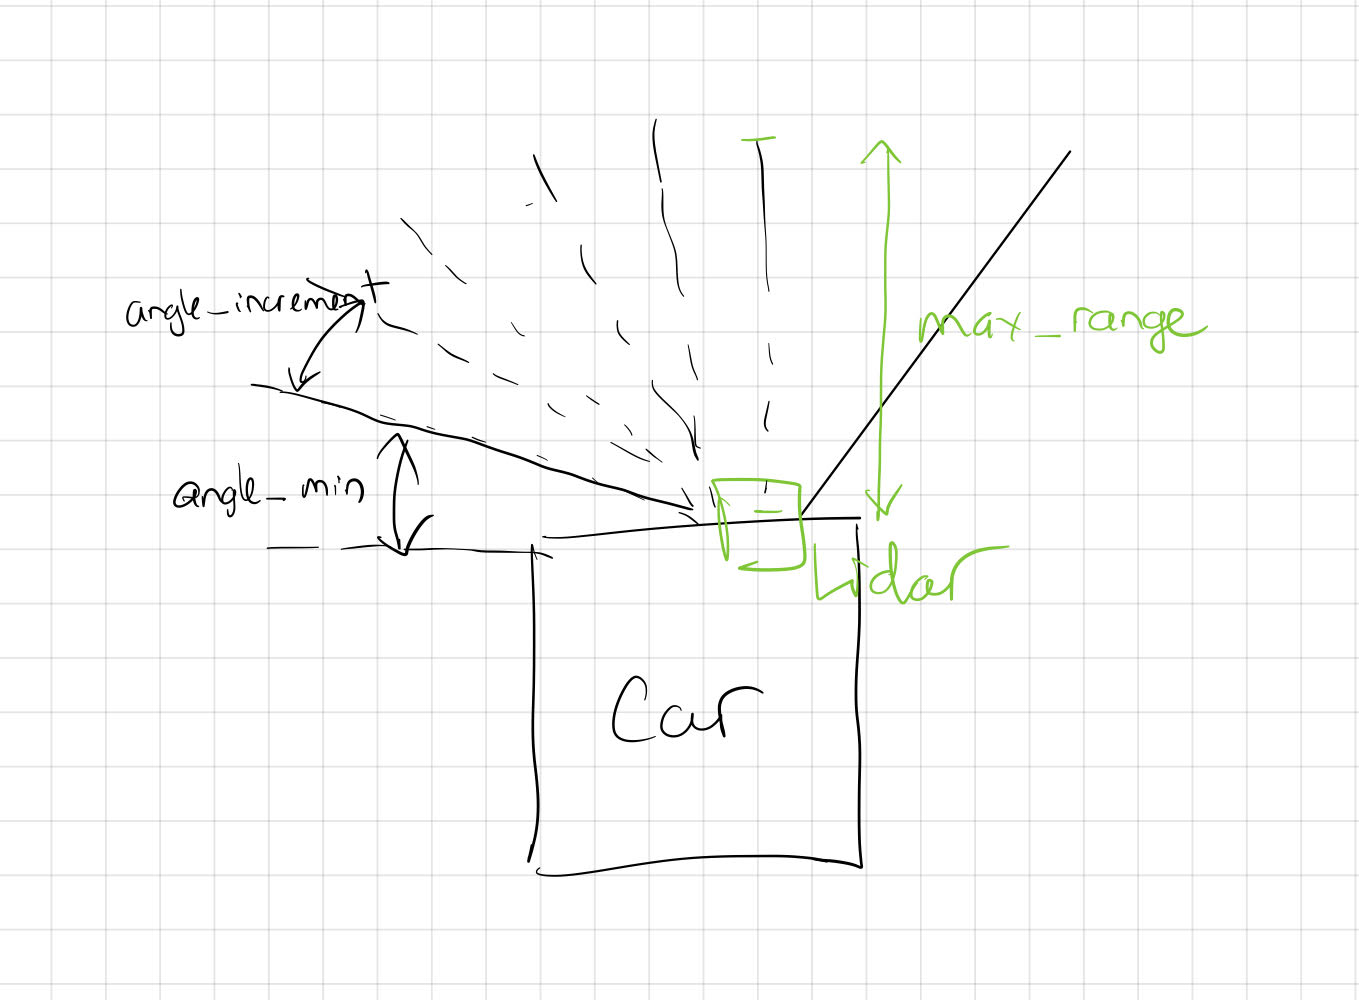 angle_increment
max_range
angle_min
Lidar
Car